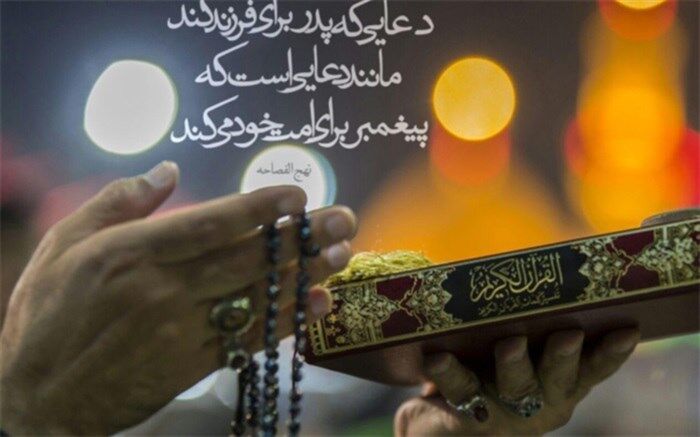 دعایی که پدر برای فرزند کند
مانند دعایی است که
پیغمبر برای امت خود می کند
نهج الفصاحه
القرآن الكريم